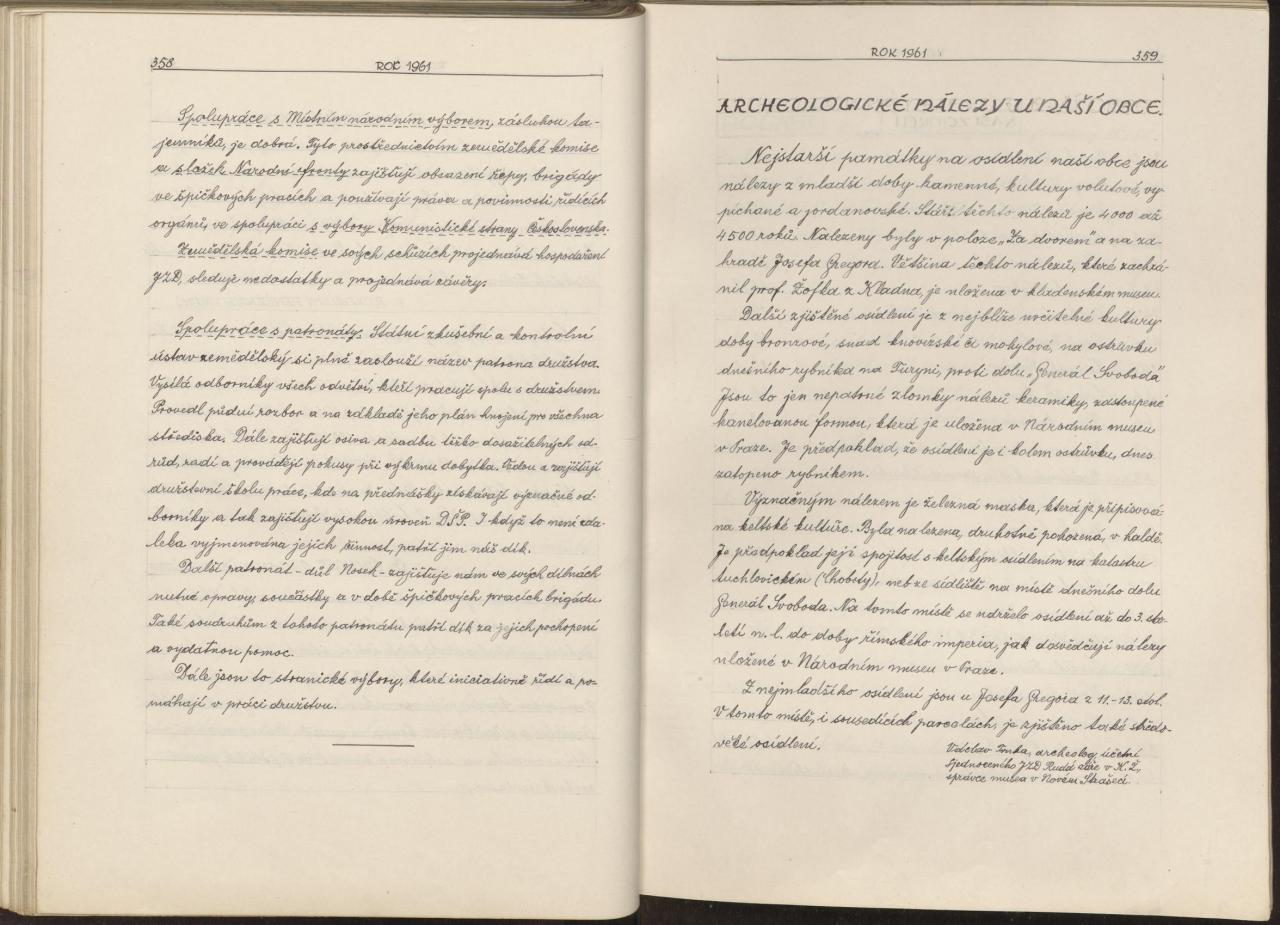 358
ROK 1961
Spolupráce s Místním národním výborem, zásluhou ta-
jemníků, je dobrá. Tyto prostřednictvím zemědělské komise
a složek Národní fronty zajišťují obsazení řepy, brigády
ve špičkových pracích a používají práva a povinnosti řídících
orgánů, ve spolupráci s výbory Komunistické strany Československa.
Zemědělská komise ve svých schůzích projednává hospodaření
JZD, sleduje nedostatky a projednává závěry.
Spolupráce s patronáty. Státní zkušební a kontrolní
ústav zemědělský si plně zaslouží název patrona družstva.
Vysílá odborníky všech odvětví, kteří pracují spolu s družstvem.
Provedl půdní rozbor a na základě jeho plán hnojení pro všechna
střediska. Dále zajišťují osiva a sadbu těžko dosažitelných od-
růd, radí a provádějí pokusy při výkrmu dobytka. Vedou a zajišťují
družstevní školu práce, kde na přednášky získávají význačné od-
borníky a tak zajišťují vysokou úroveň DŠP. I když to není zda-
leka vyjmenována jejich činnost, patří jim náš dík.
Další patronát - důl Nosek - zajišťuje nám ve svých dílnách
nutné opravy, součástky a v době špičkových pracích brigádu.
Také soudruhům z tohoto patronátu patří dík za jejich pochopení
a vydatnou pomoc.
Dále jsou to stranické výbory, které iniciativně řídí a po-
máhají v práci družstvu.
ROK 1961
359
ARCHEOLOGICKÉ NÁLEZY U NAŠÍ OBCE.
Nejstarší památky na osídlení naší obce jsou
nálezy z mladší doby kamenné, kultury volutové, vy-
píchané a jordanovské. Stáří těchto nálezů je 4000 až
4500 roků. Nalezeny byly v poloze „Za dvorem" a na za-
hradě Josefa Gregora. Většina těchto nálezů, které zachrá-
nil prof. Žofka z Kladna, je uložena v kladenském museu.
Další zjištěné osídlení je z nejblíže určitelné kultury
doby bronzové, snad knovízské či mohylové, na ostrůvku
dnešního rybníka na Turyni, proti dolu „Generál Svoboda"
Jsou to jen nepatrné zlomky nálezů keramiky, zastoupené
kanelovanou formou, která je uložena v Národním museu
v Praze. Je předpoklad, že osídlení je i kolem ostrůvku, dnes
zatopeno rybníkem.
Význačným nálezem je železná maska, která je připisová-
na keltské kultuře. Byla nalezena, druhotně pohozená, v haldě.
Je předpoklad její spojitost s keltským osídlením na katastru
tuchlovickém (Chobity), neb ze sídliště na místě dnešního dolu
Generál Svoboda. Na tomto místě se udrželo osídlení až do 3. sto-
letí n. l. do doby římského imperia, jak dosvědčují nálezy
uložené v Národním museu v Praze.
Z nejmladšího osídlení jsou u Josefa Gregora z 11.-13. stol.
V tomto místě, i sousedících parcelách, je zjištěno také středo-
věké osídlení.
Václav archeolog, účetní
Sjednoceného JZD Rudá záře v K. Ž.,
správce musea v Novém Strašecí